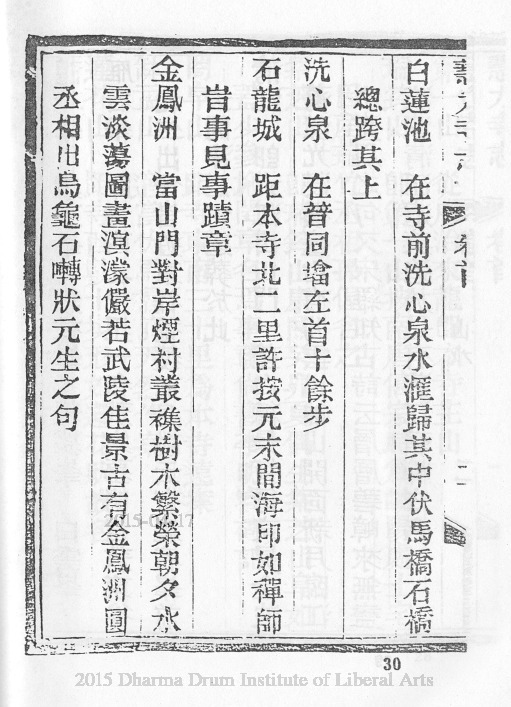 白蓮池　在寺前洗心泉水滙歸其中伏馬橋石橋
總跨其上
洗心泉　在普同墖左首十餘步
石龍城　距本寺北一里許按元末間海印如禪師
旹事見事蹟章
金鳳洲　當山門對岸煙村叢襍樹木繁榮朝夕水
雲淡蕩圖畫溟濛儼若武陵佳景古有金鳳洲圓
丞相出烏龜石轉狀元生之句
30
2015 Dharma Drum Institute of Liberal Arts